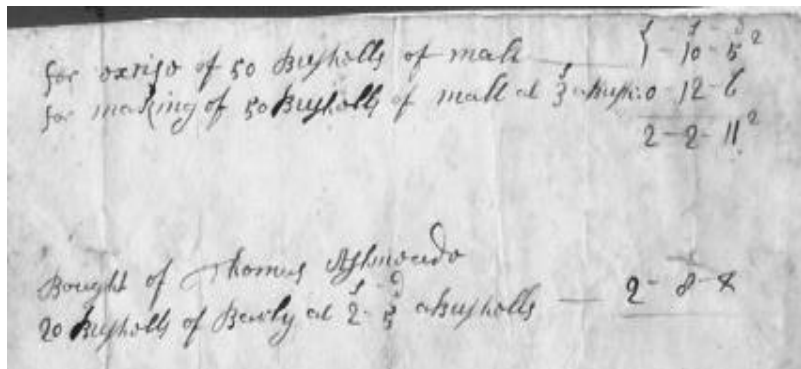 s d
for exise of 50 Bushells of malt 1-10-5 2
for making of 50 Bushells of malt at 3 a bush: 0-12-6
2-2-11 2
Bought of Thomas
s d
20 Bushells of Barly at 2-5 a bushells — 2-8-4